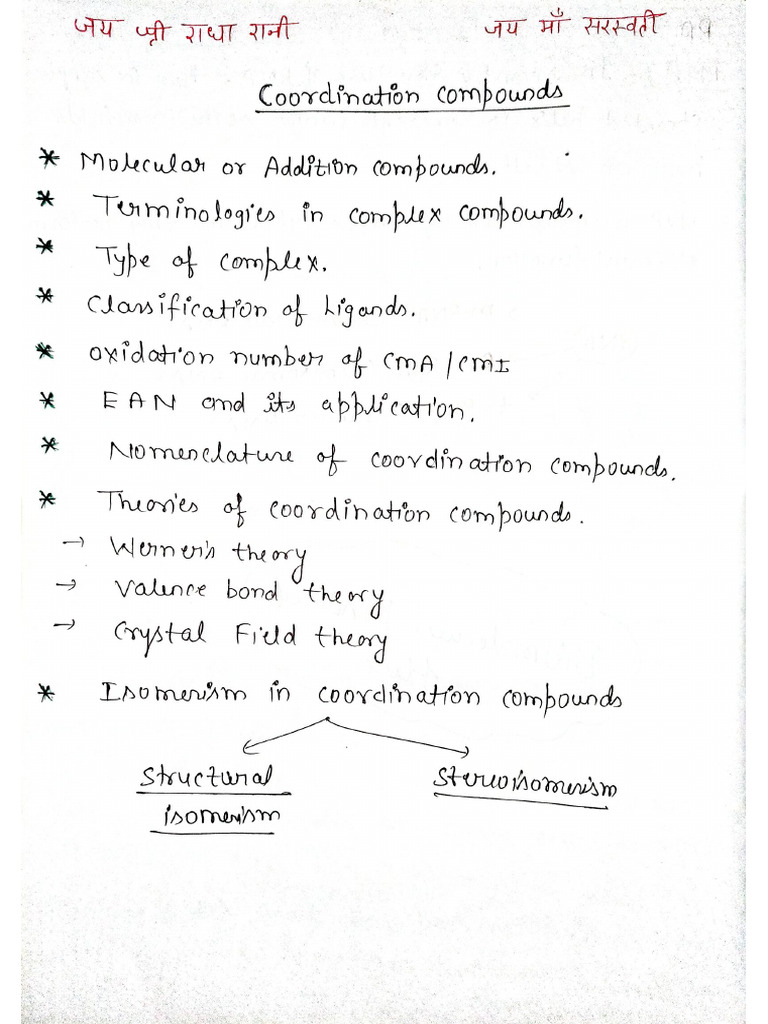 जय श्री राधा रानी जय माँ सरस्वती
Coordination compounds
* Molecular or Addition compounds.
* Terminologies in complex compounds.
* Type of complex.
* Classification of Ligands.
* Oxidation number of CMA/CMI
* EAN and its application.
* Nomenclature of coordination compounds.
* Theories of coordination compounds.
→ Werner's theory
→ Valence bond theory
→ Crystal Field theory
* Isomerism in coordination compounds
Structural Stereoisomerism
isomerism